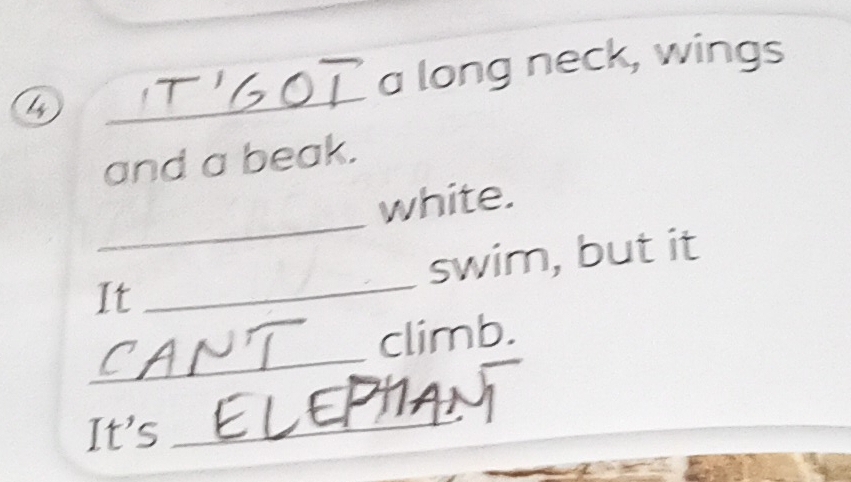 4 IT'GOT a long neck, wings
and a beak.
____________ white.
It ____________ swim, but it
CAN'T climb.
It's ELEPHANT